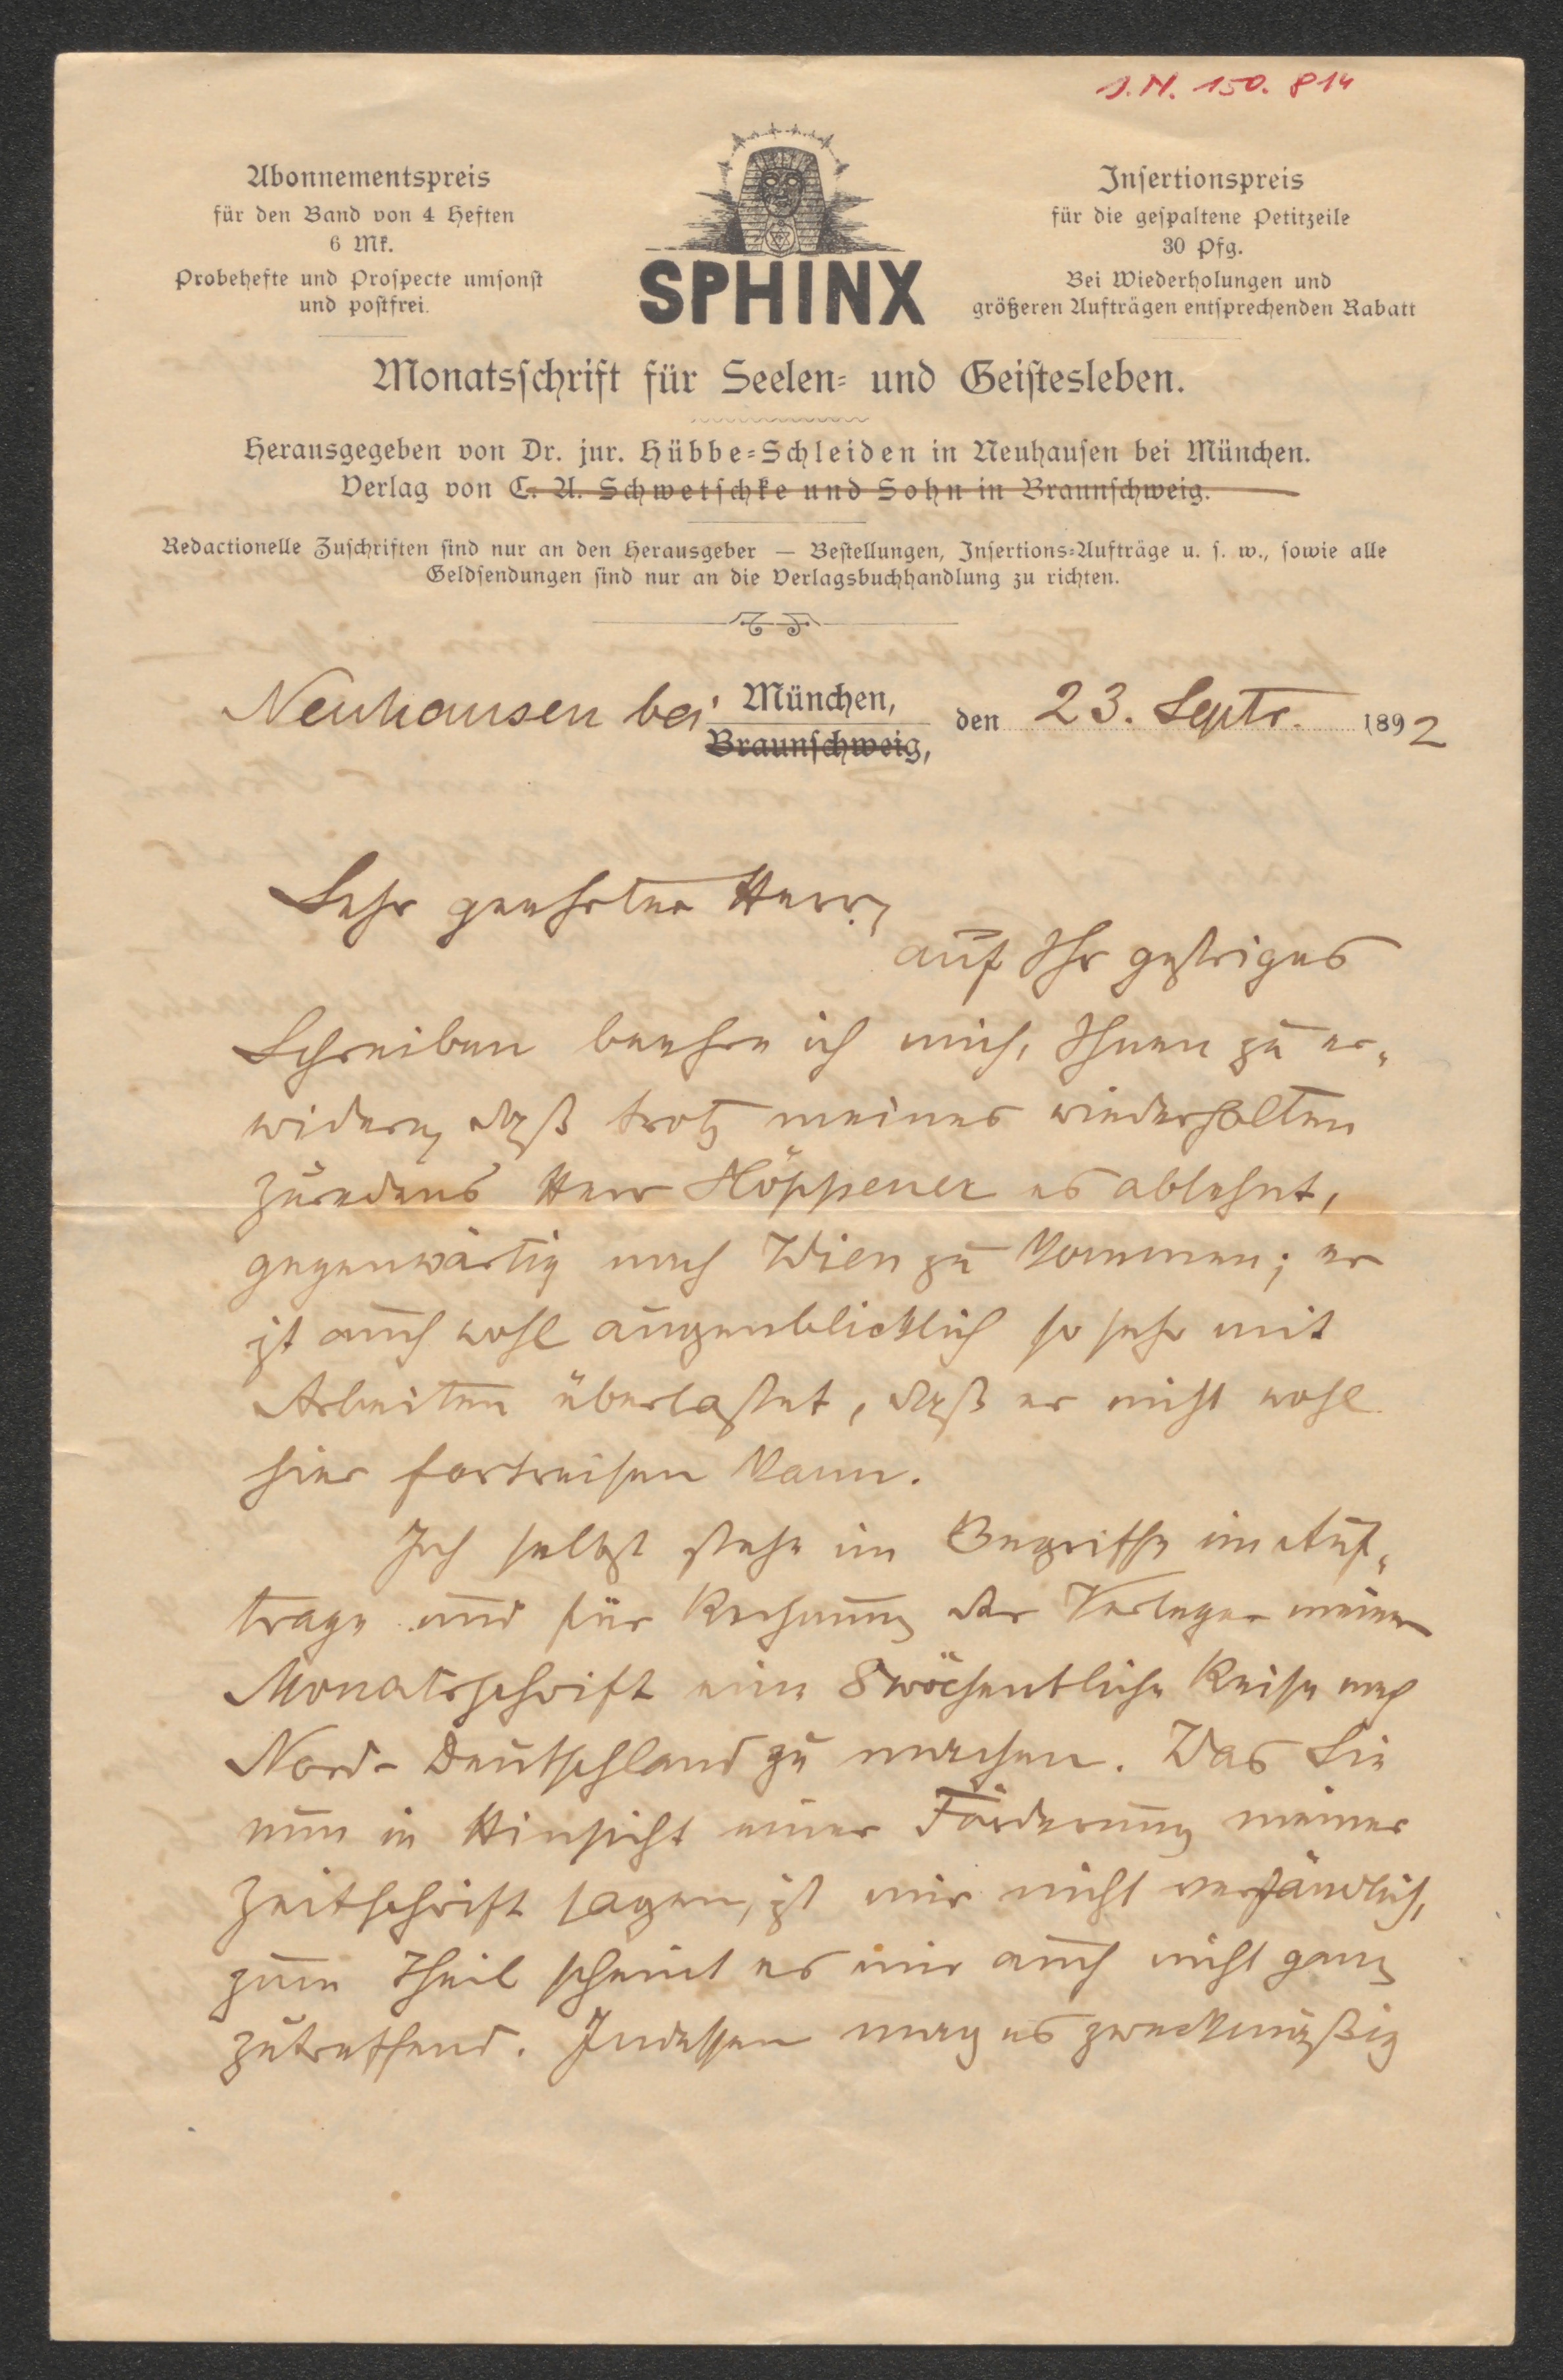 J.N. 150.814
Abonnementspreis
für den Band von 4 Heften
6 Mk.
Probehefte und Prospecte umsonst
und postfrei.
SPHINX
Insertionspreis
für die gespaltene Petitzeile
30 Pfg.
Bei Wiederholungen und
größeren Aufträgen entsprechenden Rabatt
Monatsschrift für Seelen- und Geistesleben.
Herausgegeben von Dr. jur. Hübbe-Schleiden in Neuhausen bei München.
Verlag von C. A. Schwetschke und Sohn in Braunschweig.
Redactionelle Zuschriften sind nur an den Herausgeber — Bestellungen, Insertions-Aufträge u. s. w., sowie alle
Geldsendungen sind nur an die Verlagsbuchhandlung zu richten.
Neuhausen bei München, den 23. Septr. 1892
Braunschweig,
Sehr geehrter Herr,
auf Ihr gestriges
Schreiben beehre ich mich, Ihnen zu er-
widern, daß trotz meines wiederholten
Zuredens Herr Höppener es ablehnt,
gegenwärtig nach Wien zu kommen; er
ist auch wohl augenblicklich so sehr mit
Arbeiten überlastet, daß er nicht wohl
hier fortreisen kann.
Ich selbst stehe im Begriffe im Auf-
trage und für Rechnung der Verleger meiner
Monatsschrift eine 8wöchentliche Reise nach
Nord-Deutschland zu machen. Was Sie
nun in Hinsicht einer Förderung meiner
Zeitschrift sagen, ist mir nicht verständlich,
zum Theil scheint es mir auch nicht ganz
zutreffend. Indessen mag es zweckmäßig